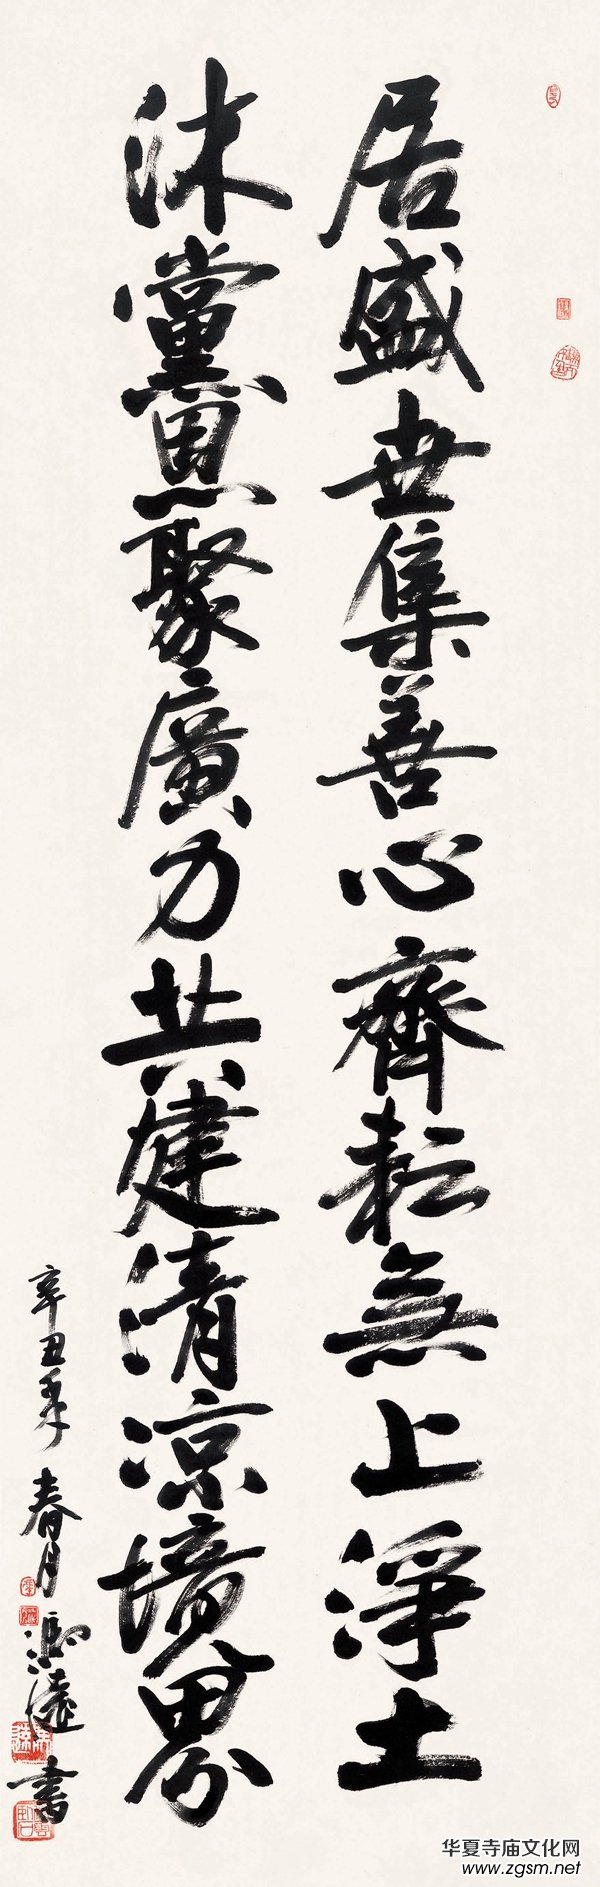 居盛世集善心齊耘無上淨土
沐黨恩聚廣力共建清凉境界
辛丑年春月馮遠書
华夏寺庙文化网
www.zgsm.net